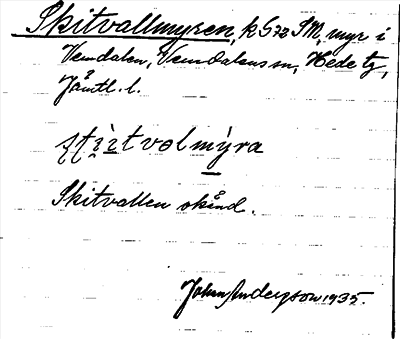 Skitvallmyren, k G22 SM, myr i
Vemdalen, Vemdalens sn, Hede tg,
Jämtl. l.
mỳra
Skitvallen okänd.
John Anderson 1935.